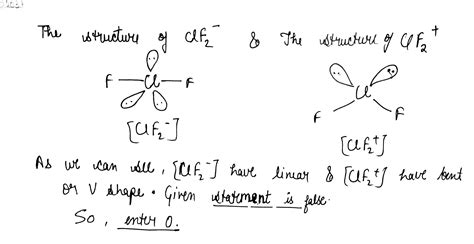 The structure of ClF₂⁻ & The structure of ClF₂⁺
F Cl F
Cl
F F
[ClF₂⁻]
[ClF₂⁺]
As we can see, [ClF₂⁻] have linear & [ClF₂⁺] have bent
or V shape. Given statment is false.
So, enter 0.